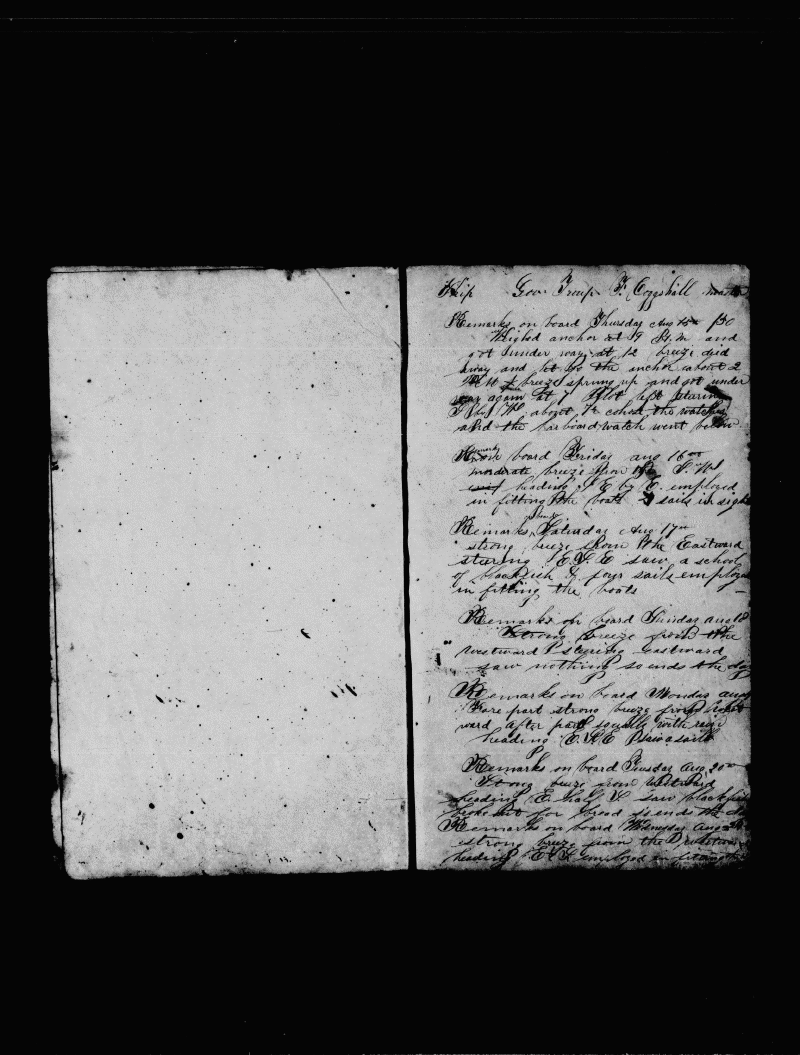 Ship Gov Troup F. Coggshall master
Remarks on board Thursday Aug 15th
Weighed anchor at 9 A.M. and
got under way at 12 breeze died
away and let go the anchor about 2
P M breeze sprung up and got under
way again at 7 Pilot left
about 7 the watches
and the larboard watch went below
Remarks on board Friday aug 16th
moderate breeze from the S.W
heading S E by E. employed
in fitting the boats sails in sight
Remarks Saturday Aug 17th
strong breeze from the Eastward
steering E.S.E saw a school
of blackfish & four sails employed
in fitting the boats
Remarks on board Sunday aug 18
Strong breeze from the
westward steering Eastward
saw nothing so ends the day
Remarks on board Monday aug
Fore part strong breeze from
ward after part squally with rain
heading E.S.E saw a sail
Remarks on board Tuesday Aug 20th
Strong breeze from Westward
heading E. half S saw blackfish
broke out for bread so ends the
Remarks on board Wednesday Aug
strong breeze from the
heading E.S. employed in fitting